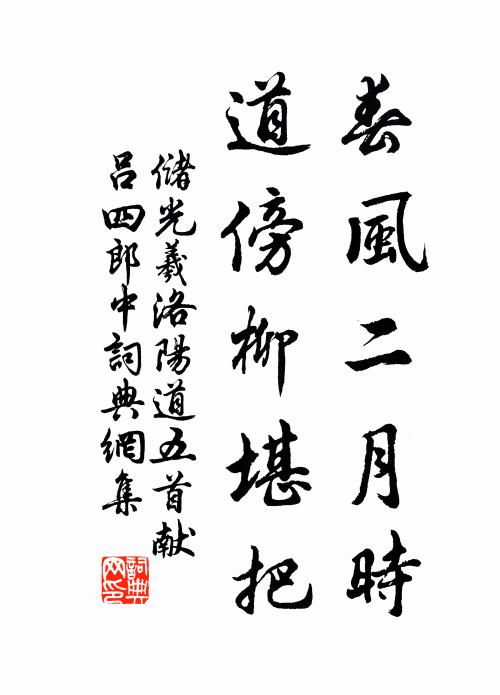 春風二月時
道傍柳堪把
儲光羲洛陽道五首献
呂四郎中詞典網集
詞典网印